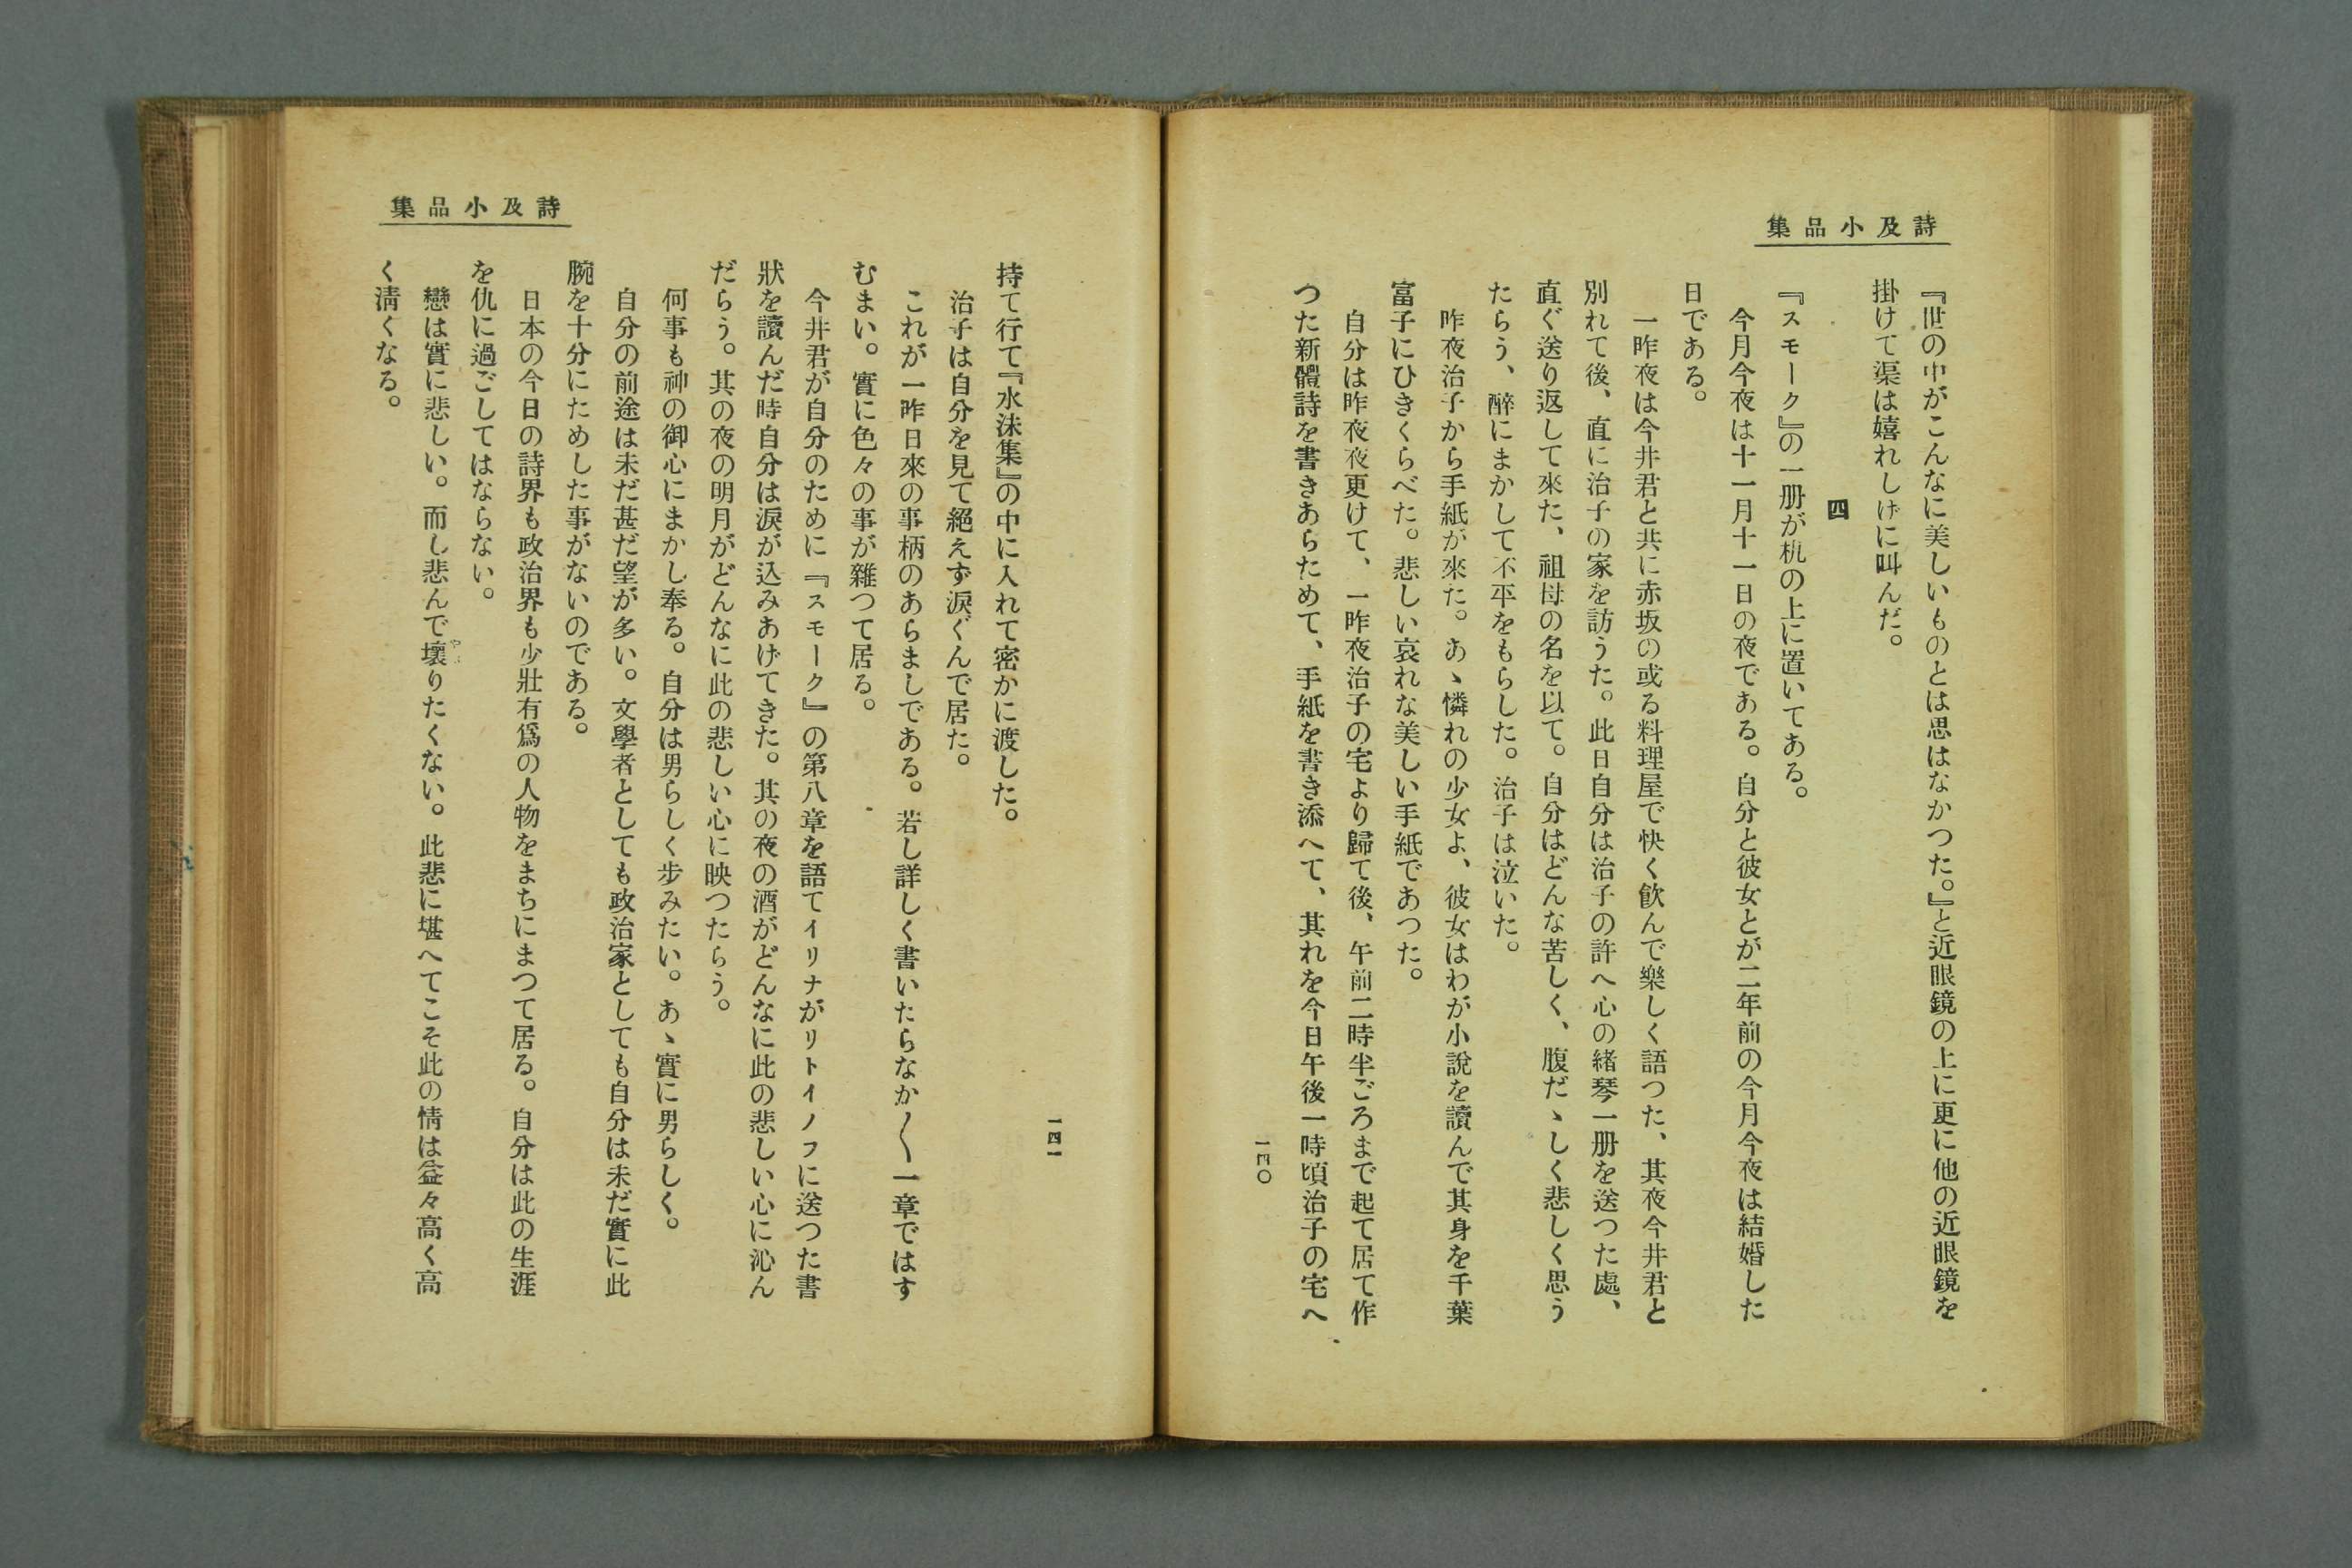 詩及小品集
『世の中がこんなに美しいものとは思はなかつた。』と近眼鏡の上に更に他の近眼鏡を
掛けて渠は嬉れしげに叫んだ。
四
『スモーク』の一册が机の上に置いてある。
今月今夜は十一月十一日の夜である。自分と彼女とが二年前の今月今夜は結婚した
日である。
一昨夜は今井君と共に赤坂の或る料理屋で快く飮んで樂しく語つた、其夜今井君と
別れて後、直に治子の家を訪うた。此日自分は治子の許へ心の緖琴一册を送つた處、
直ぐ送り返して來た、祖母の名を以て。自分はどんな苦しく、腹だゝしく悲しく思う
たらう、醉にまかして不平をもらした。治子は泣いた。
昨夜治子から手紙が來た。あゝ憐れの少女よ、彼女はわが小說を讀んで其身を千葉
富子にひきくらべた。悲しい哀れな美しい手紙であつた。
自分は昨夜夜更けて、一昨夜治子の宅より歸て後、午前二時半ごろまで起て居て作
つた新體詩を書きあらためて、手紙を書き添へて、其れを今日午後一時頃治子の宅へ
一四〇
詩及小品集
一四一
持て行て『水沫集』の中に入れて密かに渡した。
治子は自分を見て絕えず淚ぐんで居た。
これが一昨日來の事柄のあらましである。若し詳しく書いたらなか〱一章ではす
むまい。實に色々の事が雜つて居る。
今井君が自分のために『スモーク』の第八章を語てイリナがリトイノフに送つた書
狀を讀んだ時自分は淚が込みあげてきた。其の夜の酒がどんなに此の悲しい心に沁ん
だらう。其の夜の明月がどんなに此の悲しい心に映つたらう。
何事も神の御心にまかし奉る。自分は男らしく步みたい。あゝ實に男らしく。
自分の前途は未だ甚だ望が多い。文學者としても政治家としても自分は未だ實に此
腕を十分にためした事がないのである。
日本の今日の詩界も政治界も少壯有爲の人物をまちにまつて居る。自分は此の生涯
を仇に過ごしてはならない。
戀は實に悲しい。而し悲んで壞りたくない。此悲に堪へてこそ此の情は益々高く高
く淸くなる。